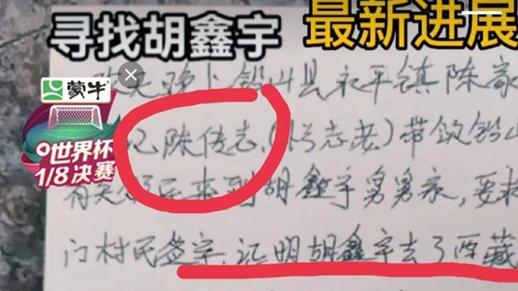 寻找胡鑫宇
最新进展
蒙牛
世界杯
1/8决赛
天晚上铅山县永平镇陈家
记陈传志,(
老)带领铅山
来到胡鑫宇舅舅家,要求
门村民签字,证明胡鑫宇去了西藏